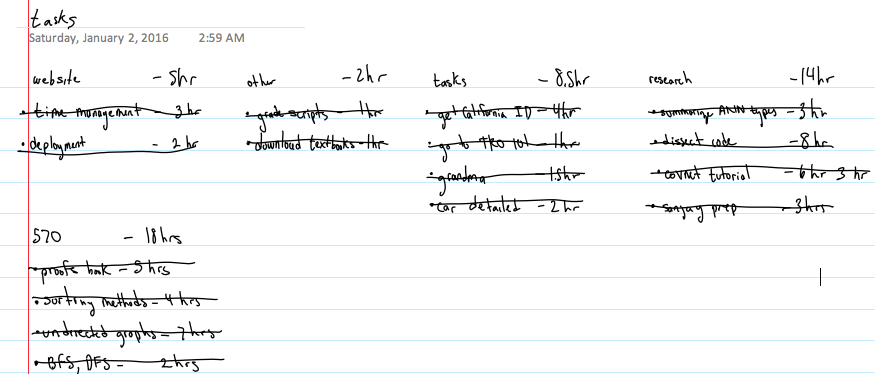 tasks
Saturday, January 2, 2016 2:59 AM
website - 5hr
• time management - 3hr
• deployment - 2hr
other - 2hr
• grade scripts - 1hr
• download textbooks - 1hr
tasks - 8.5hr
• get California ID - 4hr
• go to - 1hr
• grandma - 1.5hr
• car detailed - 2hr
research - 14hr
• summarize ANN types - 3hr
• dissect code - 8hr
• covnet tutorial - 6hr 3hr
• sanjay prep - 3hrs
570 - 18hrs
• proofs book - 5hrs
• sorting methods - 4hrs
• undirected graphs - 7hrs
• BFS, DFS - 2hrs